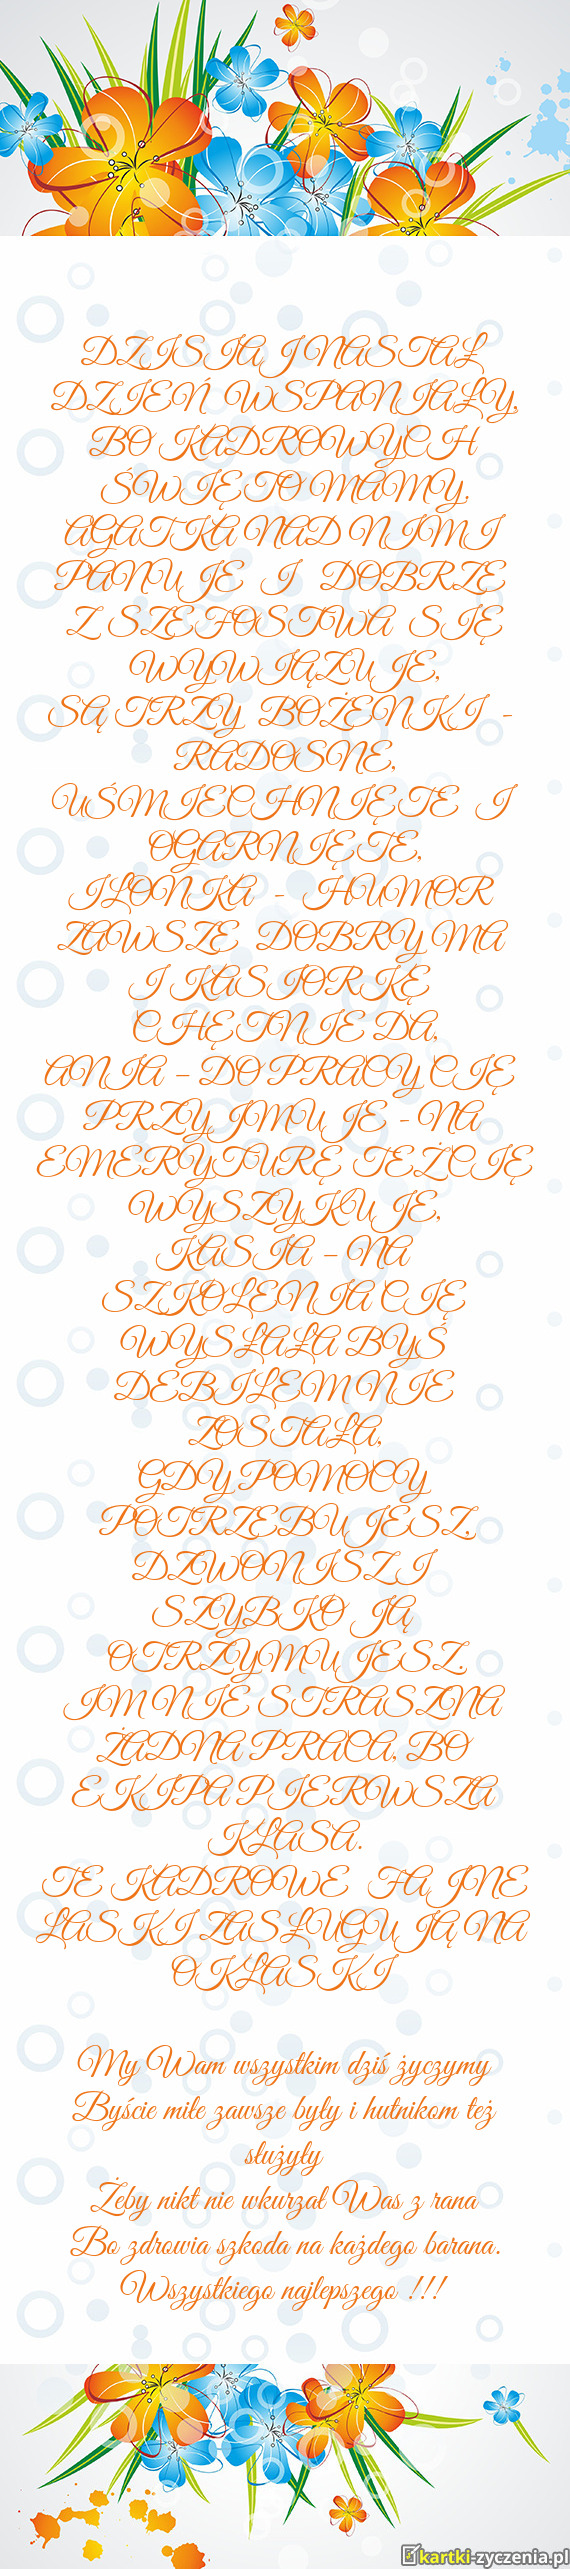 DZISIAJ NASTAŁ
DZIEŃ WSPANIAŁY,
BO KADROWYCH
ŚWIĘTO MAMY.
AGATKA NAD NIMI
PANUJE I DOBRZE
Z SZEFOSTWA SIĘ
WYWIĄZUJE,
SĄ TRZY BOŻENKI -
RADOSNE,
UŚMIECHNIĘTE I
OGARNIĘTE,
ILONKA - HUMOR
ZAWSZE DOBRY MA
I KASIORKĘ
CHĘTNIE DA,
ANIA – DO PRACY CIĘ
PRZYJMUJE - NA
EMERYTURĘ TEŻ CIĘ
WYSZYKUJE,
KASIA – NA
SZKOLENIA CIĘ
WYSŁAŁA BYŚ
DEBILEM NIE
ZOSTAŁA,
GDY POMOCY
POTRZEBUJESZ,
DZWONISZ I
SZYBKO JĄ
OTRZYMUJESZ.
IM NIE STRASZNA
ŻADNA PRACA, BO
EKIPA PIERWSZA
KLASA.
TE KADROWE FAJNE
LASKI ZASŁUGUJĄ NA
OKLASKI
My Wam wszystkim dziś życzymy
Byście miłe zawsze były i hutnikom też
służyły
Żeby nikt nie wkurzał Was z rana
Bo zdrowia szkoda na każdego barana.
Wszystkiego najlepszego !!!
kartki-zyczenia.pl